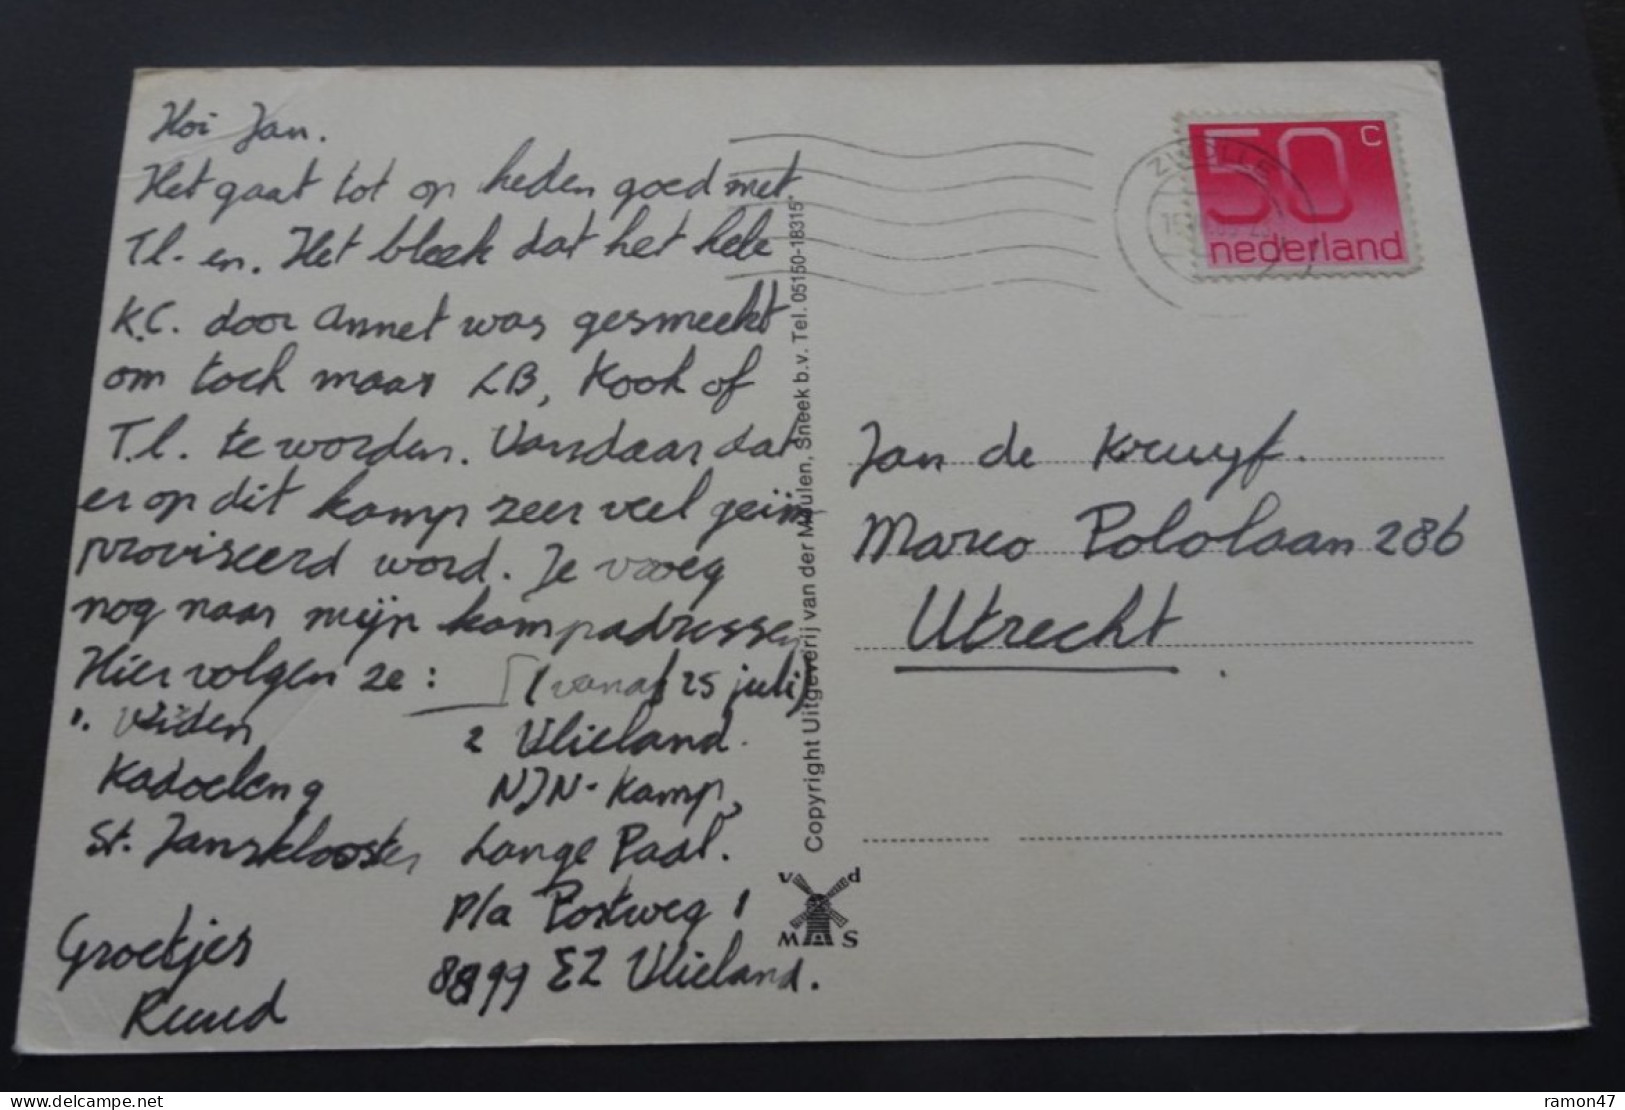 Hoi Jan.
Het gaat tot op heden goed met
T.l. en. Het bleek dat het hele
K.C. door Annet was gesmeekt
om toch maar LB, Kook of
T.l. te worden. Vandaar dat
er op dit kamp zeer veel geïm
proviseerd word. Je vroeg
nog naar mijn kampadressen
Hier volgen ze: (vanaf 25 juli)
1.
Kadoeleng
St. Jansklooster
Groetjes
Ruud
2 Vlieland.
NJN-Kamp,
Lange Paal.
p/a Postweg 1
8899 EZ Vlieland.
Copyright Uitgeverij van der Meulen, Sneek b.v. Tel. 05150-18315*
v d
M S
ZWOLLE
50 c
nederland
Jan de Kruyf.
Marco Pololaan 286
Utrecht
ramon47